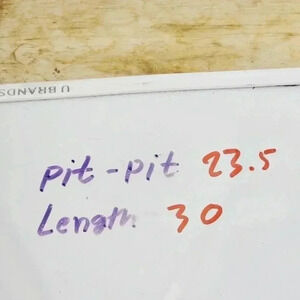 U BRANDS
pit-pit 23.5
Length 30